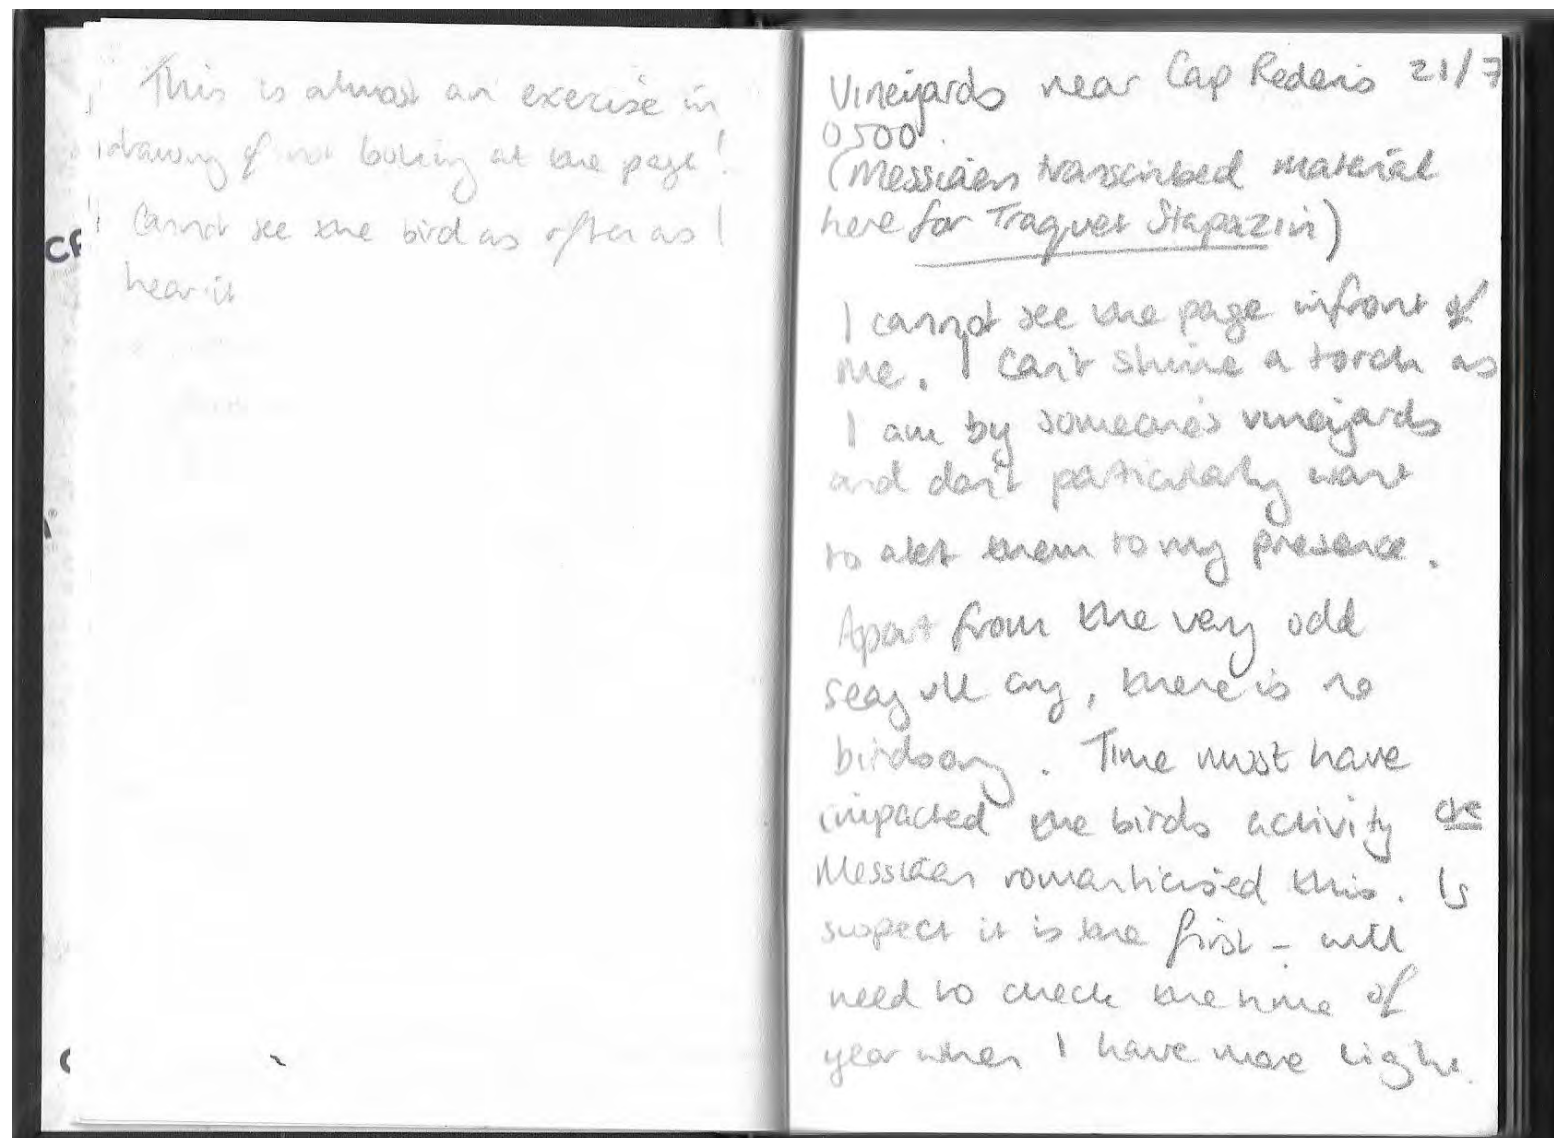 This is almost an exercise in
drawing of not looking at the page!
Cannot see the bird as often as I
hear it
Vineyards near Cap Rederis 21/7
0500
(Messiaen transcribed material
here for Traquet Stapazin)
I cannot see the page infront of
me. I can't shine a torch as
I am by someone's vineyards
and don't particularly want
to alert them to my presence.
Apart from the very odd
seagull cry, there is no
birdsong. Time must have
impacted the birds activity or
Messiaen romanticised this. I
suspect it is the first - will
need to check the time of
year when I have more light.